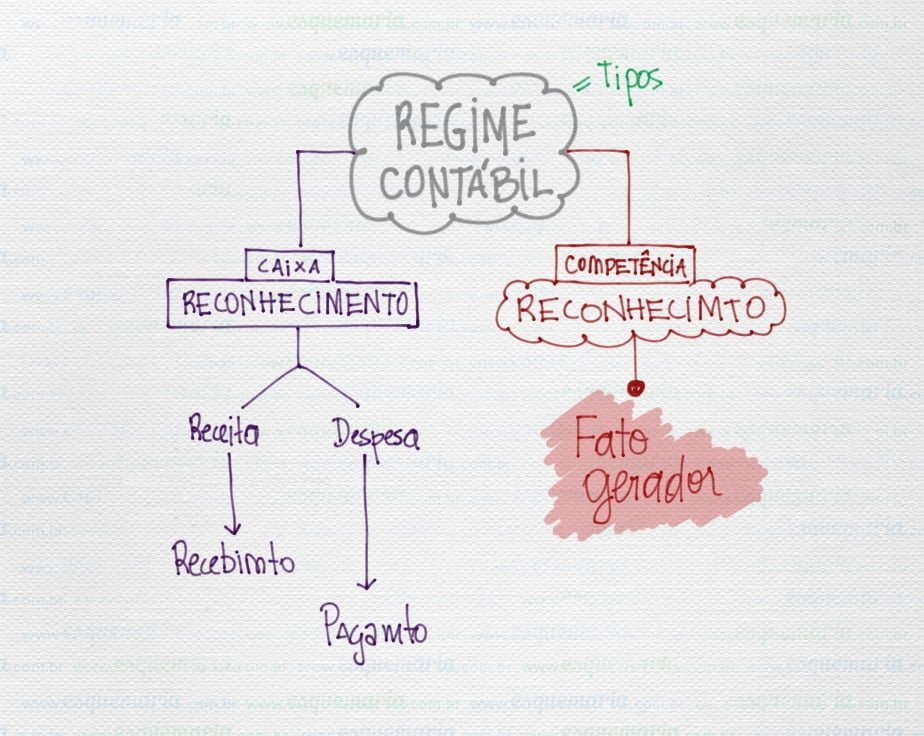 = Tipos
REGIME
CONTÁBIL
CAIXA
RECONHECIMENTO
COMPETÊNCIA
RECONHECIMTO
Receita
Despesa
Fato
gerador
Recebimto
Pagamto